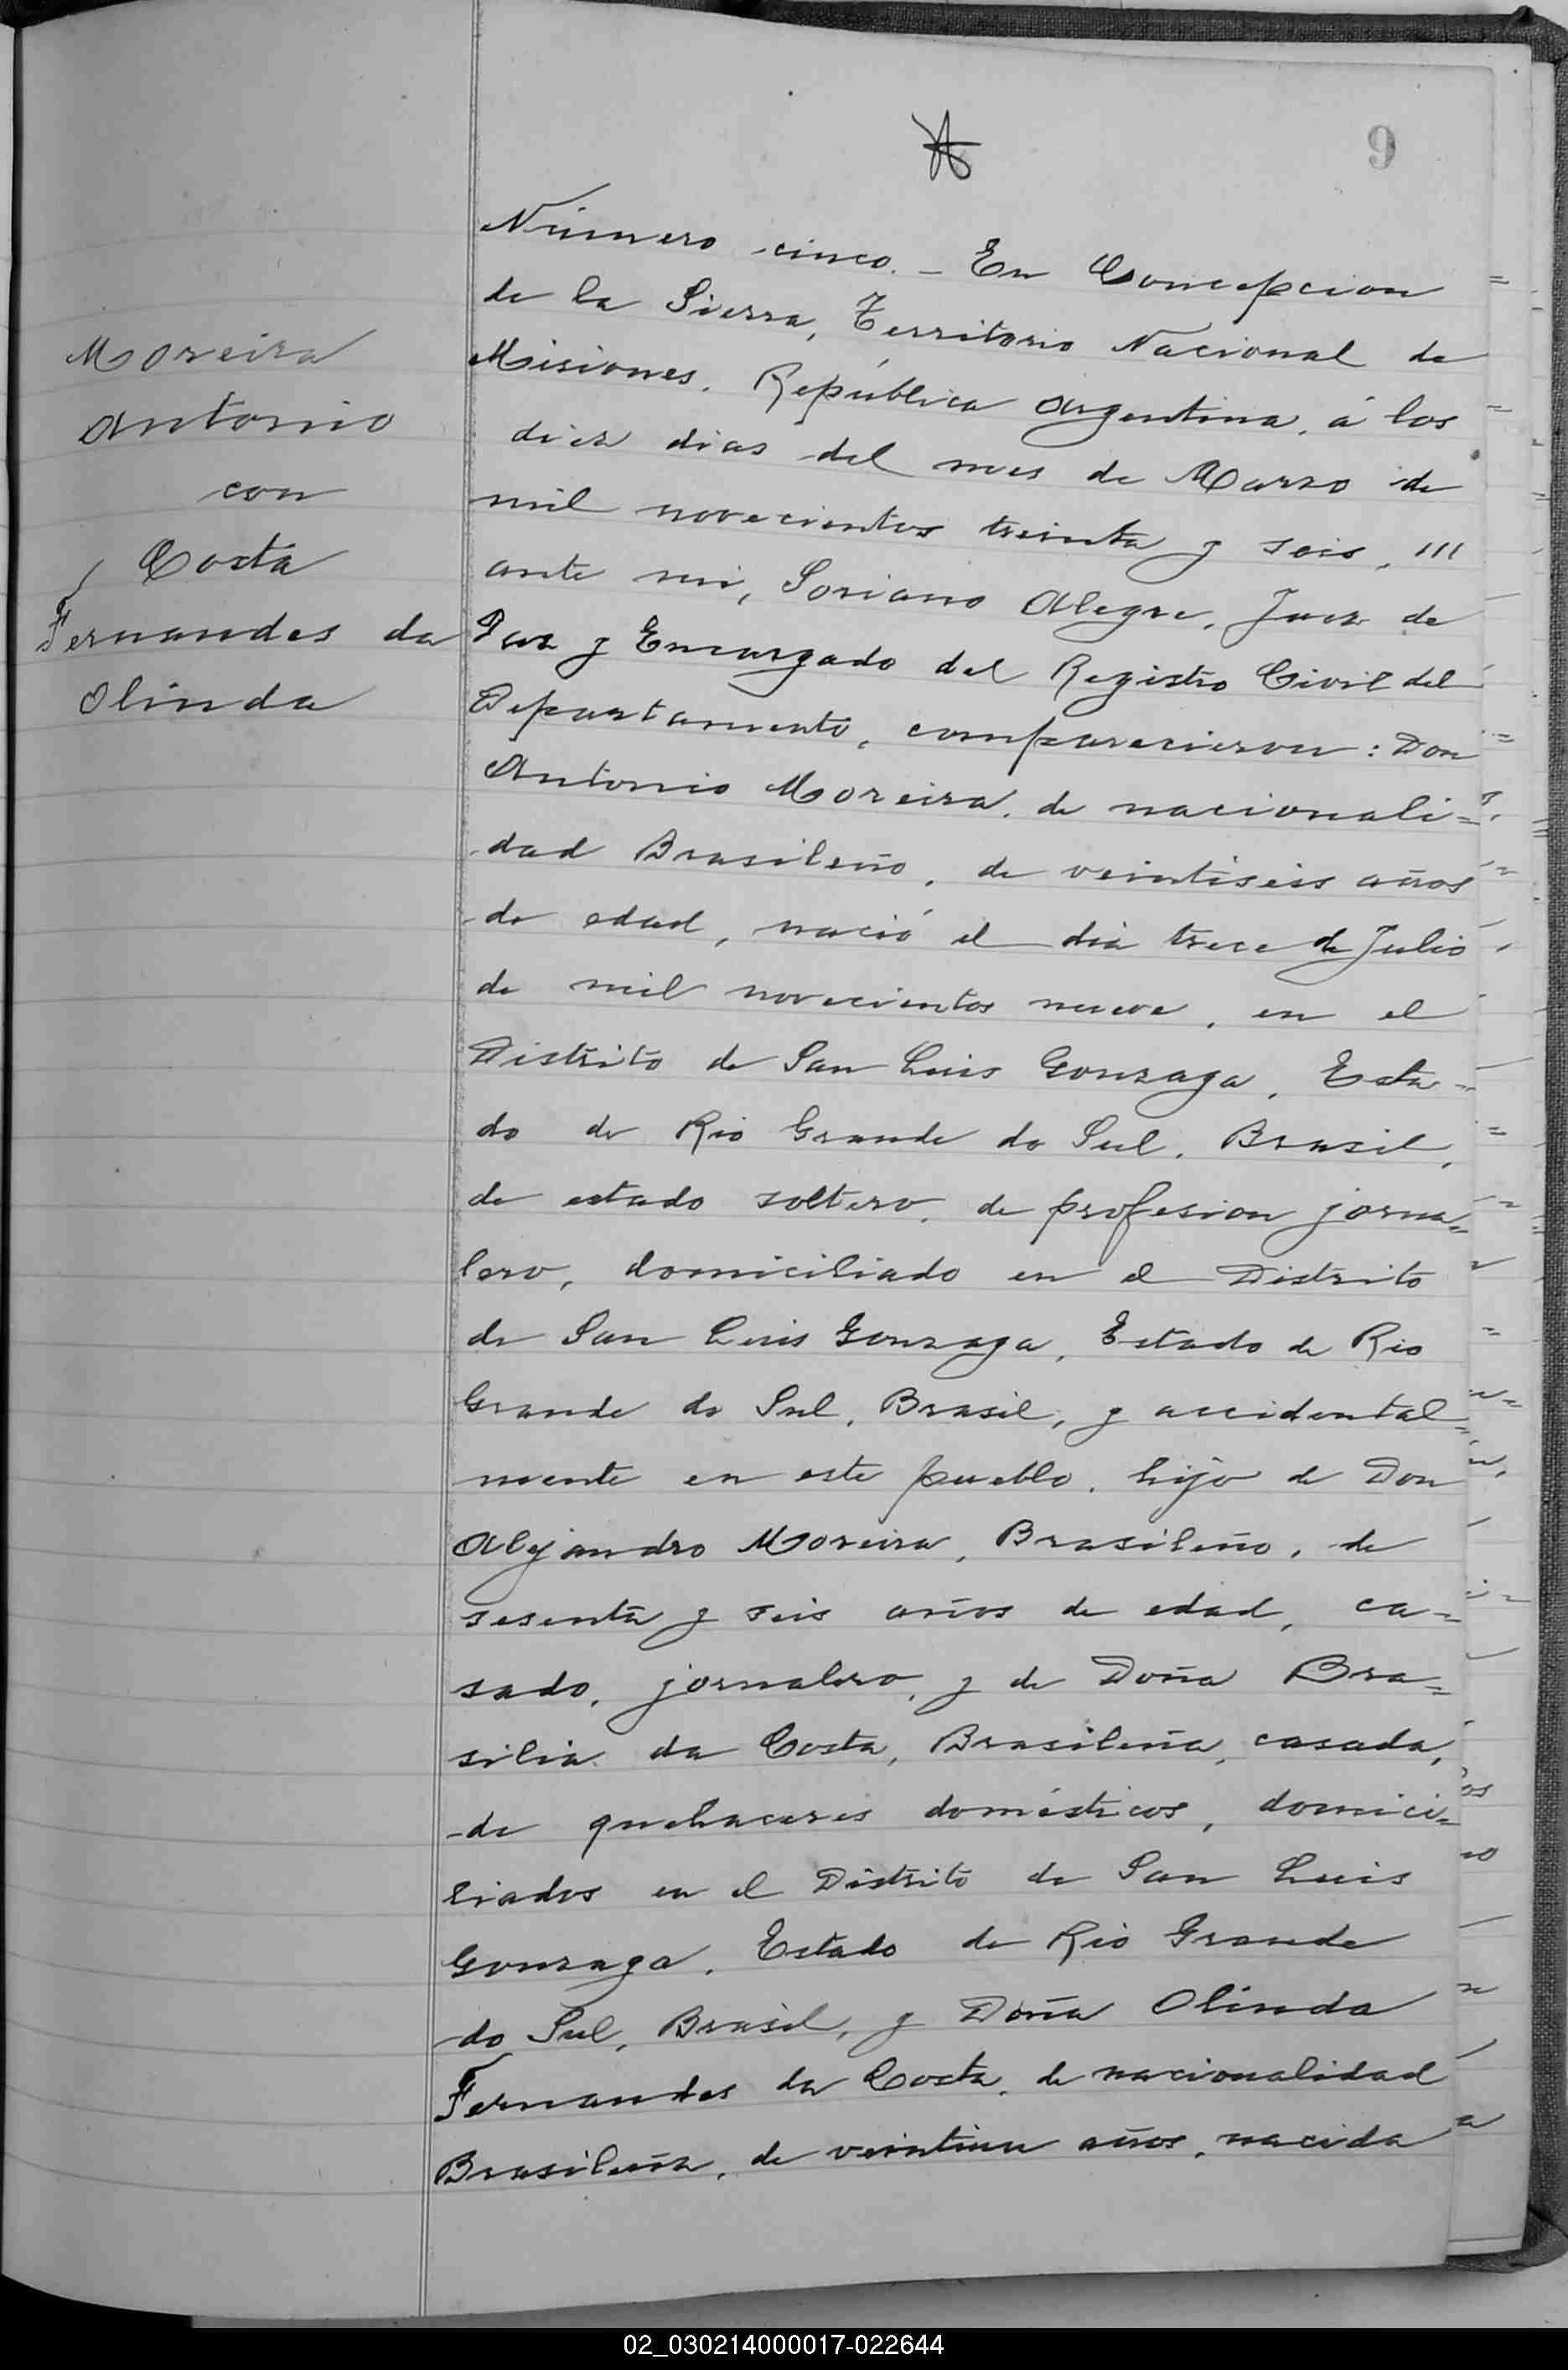 9
Número cinco. - En Concepcion
de la Sierra, Territorio Nacional de
Misiones. República Argentina, á los
diez dias del mes de Marzo de
mil novecientos treinta y seis, '''
ante mi, Soriano Alegre, Juez de
Paz y Encargado del Registro Civil del
Departamento, comparecieron: Don
Antonio Moreira, de nacionali=
dad Brasileño, de veintiseis años
de edad, nació el dia trece de Julio
de mil novecientos nueve, en el
Distrito de San Luis Gonzaga, Esta=
do de Rio Grande do Sul, Brasil,
de estado soltero, de profesion jorna=
lero, domiciliado en el Distrito
de San Luis Gonzaga, Estado de Rio
Grande do Sul, Brasil, y accidental=
mente en este pueblo, hijo de Don
Alejandro Moreira, Brasileño, de
sesenta y seis años de edad, ca=
sado, jornalero, y de Doña Bra=
silia da Costa, Brasileña, casada,
de quehaceres domésticos, domici=
liados en el Distrito de San Luis
Gonzaga, Estado de Rio Grande
do Sul, Brasil, y Doña Olinda
Fernandes da Costa, de nacionalidad
Brasileña, de veintiun años, nacida
Moreira
Antonio
con
Costa
Fernandes da
Olinda
02_030214000017-022644